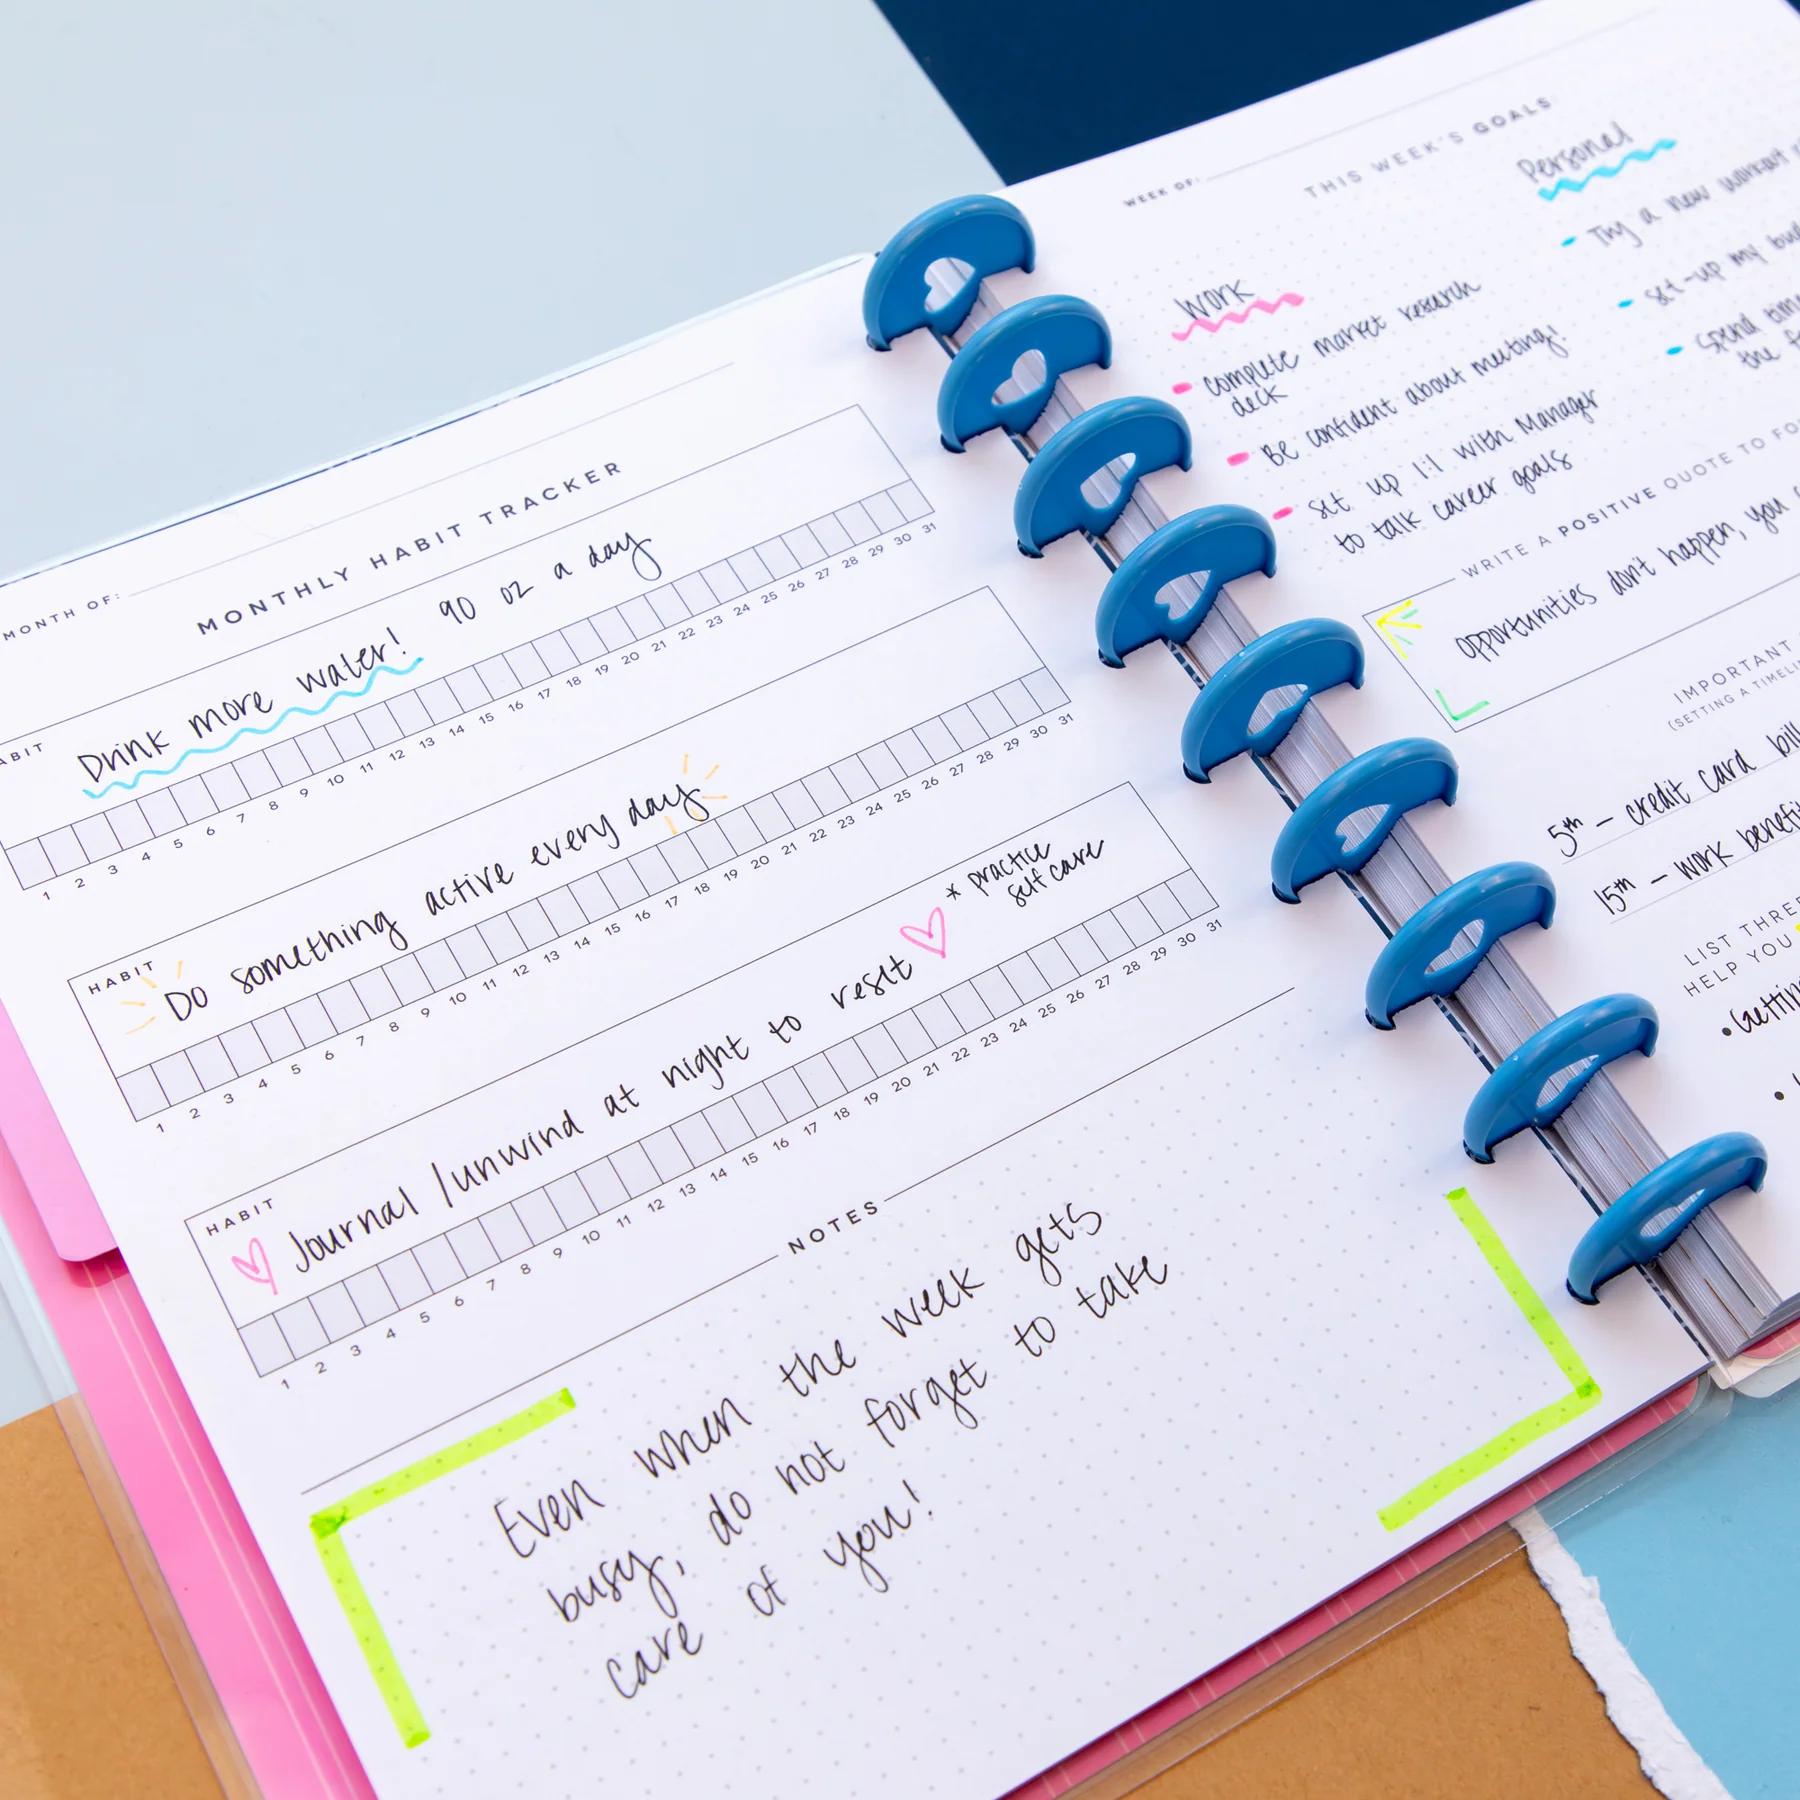 MONTH OF:
MONTHLY HABIT TRACKER
Drink more water! 90 oz a day
1 2 3 4 5 6 7 8 9 10 11 12 13 14 15 16 17 18 19 20 21 22 23 24 25 26 27 28 29 30 31
HABIT
Do something active every day
1 2 3 4 5 6 7 8 9 10 11 12 13 14 15 16 17 18 19 20 21 22 23 24 25 26 27 28 29 30 31
HABIT
Journal /unwind at night to reset
* practice
self care
1 2 3 4 5 6 7 8 9 10 11 12 13 14 15 16 17 18 19 20 21 22 23 24 25 26 27 28 29 30 31
NOTES
Even when the week gets
busy, do not forget to take
care of you!
WEEK OF:
THIS WEEK'S GOALS
Work
complete market research
deck
Be confident about meeting!
set up 1:1 with Manager
to talk career goals
Personal
Try a new workout
set-up my
spend
the
WRITE A POSITIVE QUOTE TO
opportunities don't happen, you
IMPORTANT
(SETTING A
5th – credit card
15th – work
LIST THREE
HELP YOU